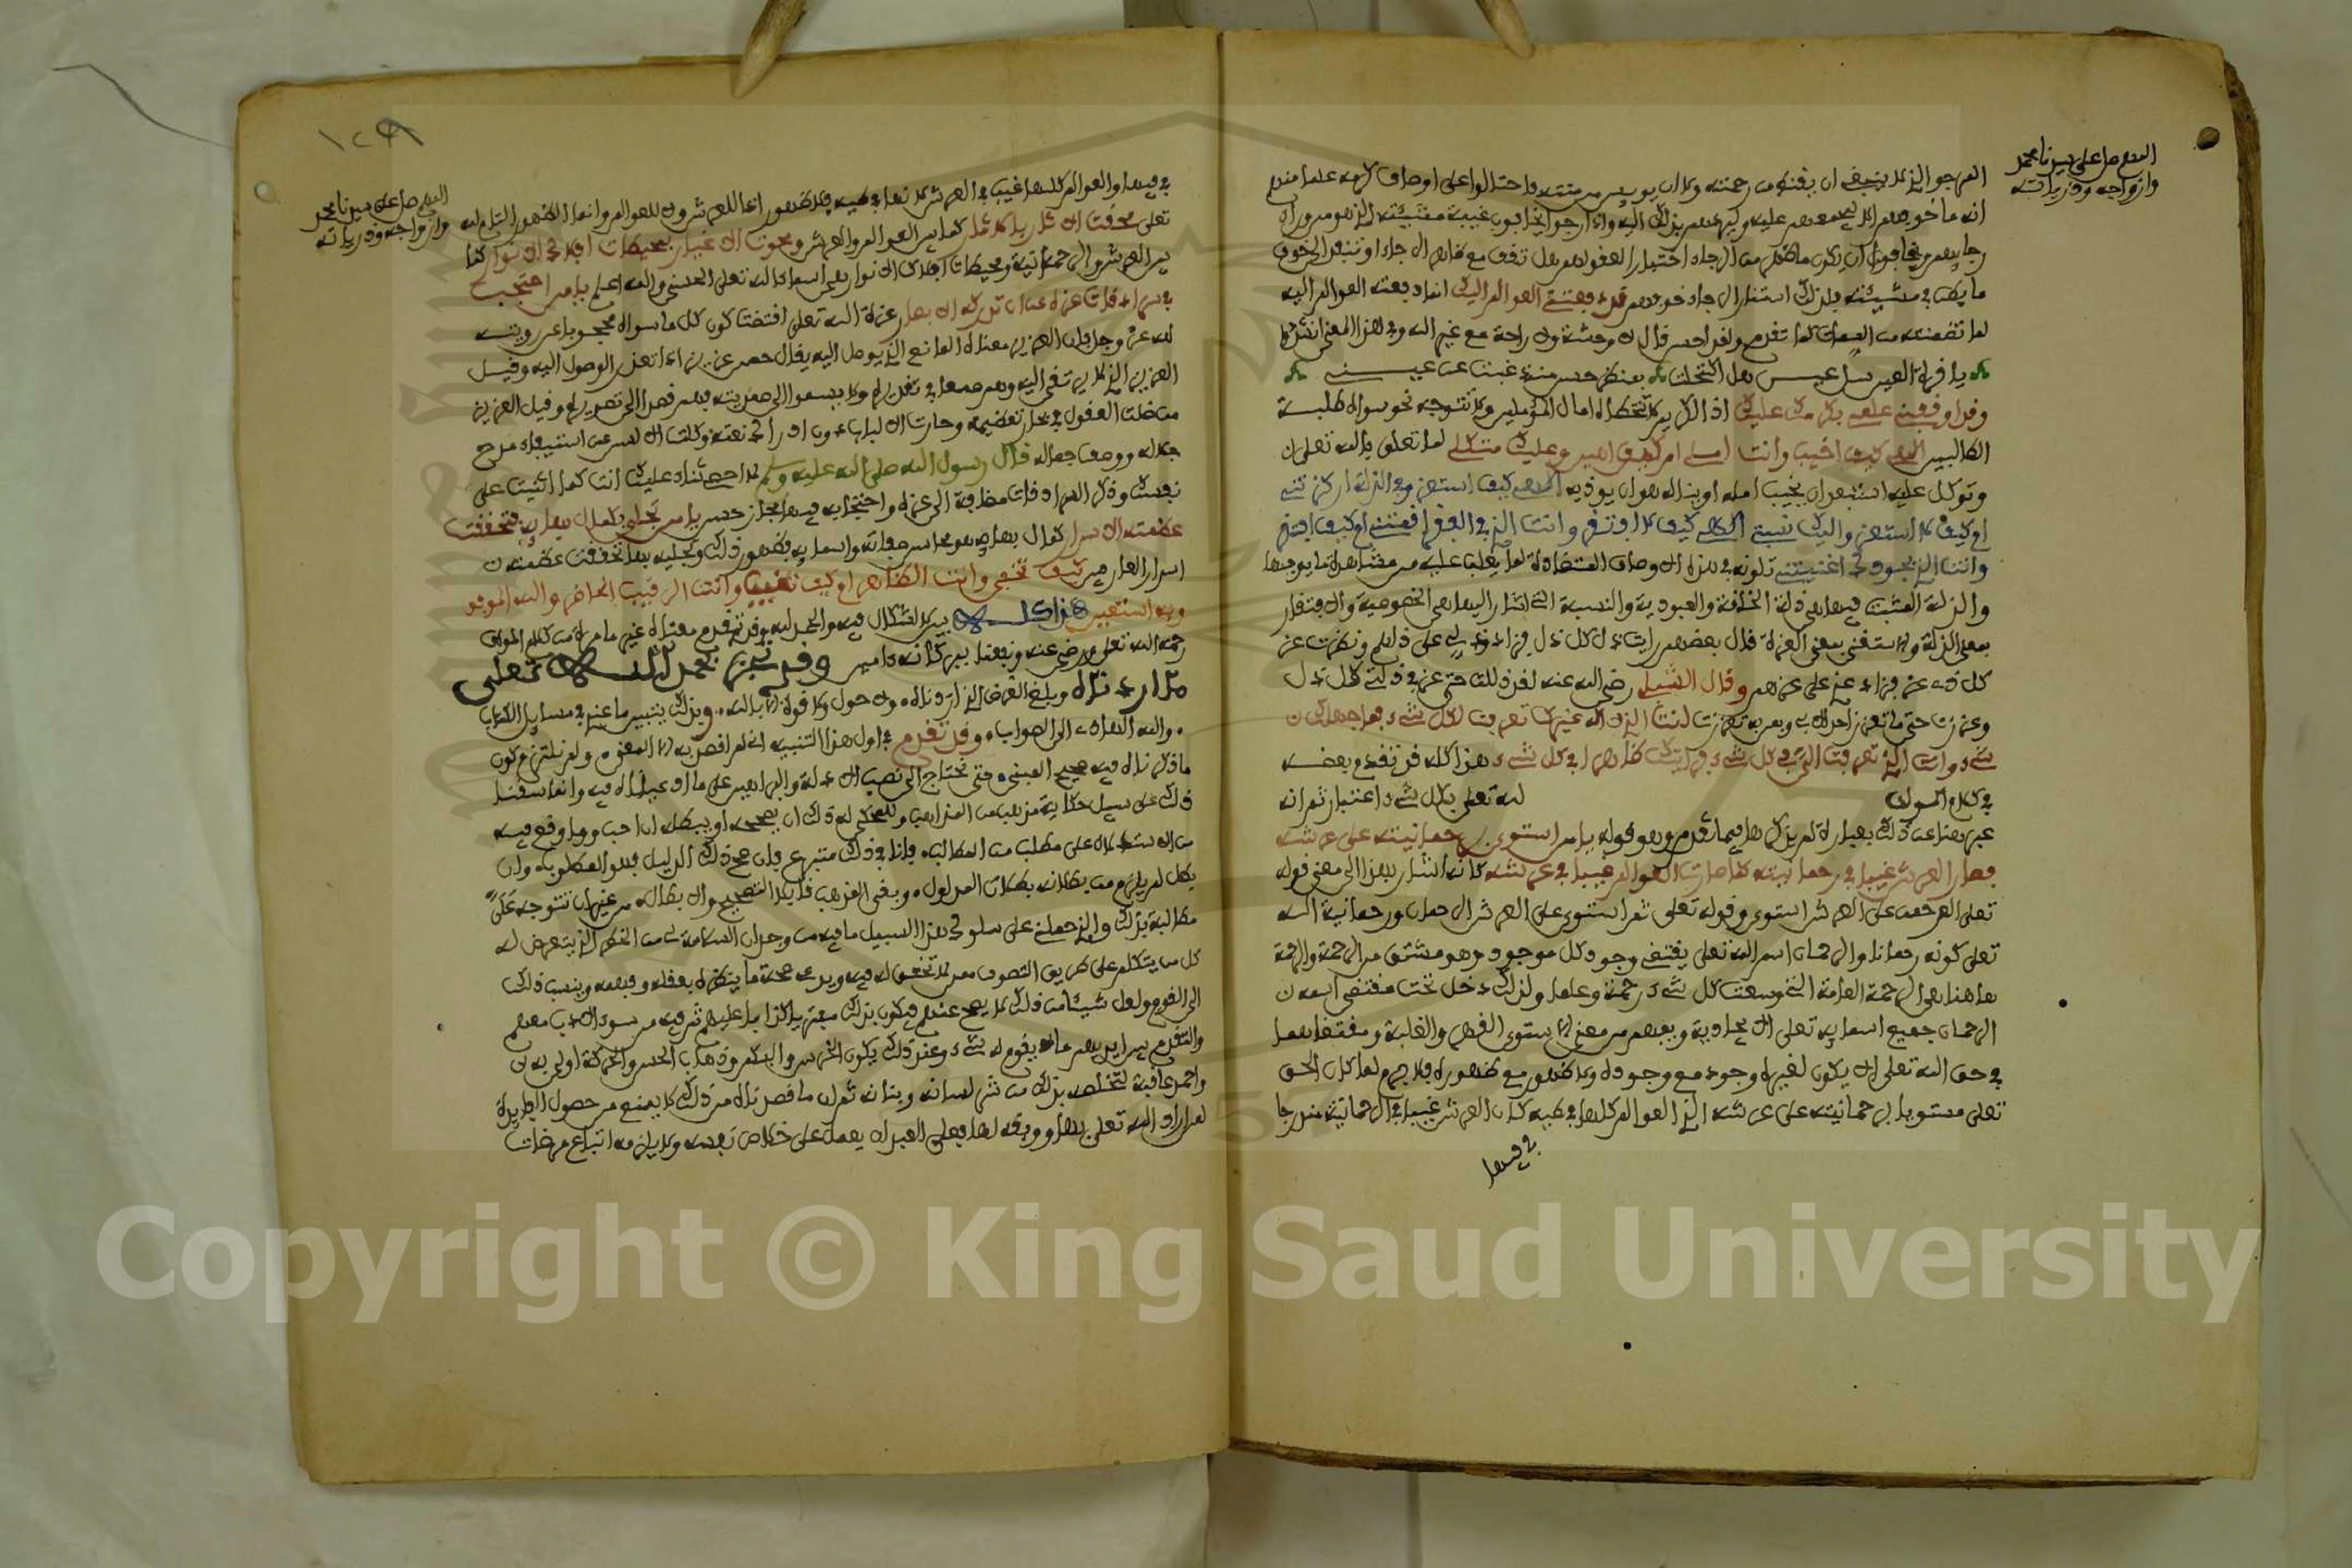 اللهم صل على سيدنا محمد
وازواجه وذرياته
المرجو الذي لا ينبغي ان يقنط من رحمته ولا ان يويس من منته فاحتالوا على اوصاف كرمه علما منهم
انه ما خوفهم الا ليجمعهم عليه وليردهم بذلك اليه واذا رجوا يخافون غيب مشيئته الذي هو من وراء
رجايهم ويخافون ان يكون ما ظهر من الرجاء اختبارا لعقولهم هل تقف مع ظاهر الرجاء او تنفذ الى خوف
ما بطن في مشيئته فلذلك استثار الرجاء خوفهم قد دفعتني العوالم اليك انما دفعته العوالم اليه
لما تضمنته من الصفات كما تقدم ولقد احسن من قال لا وحشة ولا راحة مع غير الله وفي هذا المعنى انشدوا
يا قرة العين سل عيني هل اكتحلت بمنظر حسن مذ غبت عن عيني
وقد اوقفني علمي بكرمك عليك اذ الكريم لا تتخطاه امال المؤملين ولا تتوجه نحو سواه طلبة
الطالبين الهي كيف اخيب وانت املي ام كيف اهان وعليك متكلي لما تعلق بالله تعلى
وتوكل عليه استبعد ان يخيب امله او يناله هوان يوذيه الهي كيف استعز وفي الذلة اركزتني
ام كيف لا استعز واليك نسبتني الهي كيف لا افتقر وانت الذي في الفقر اقمتني ام كيف افتقر
وانت الذي بجودك اغنيتني تلونه في هذه الاوصاف المتضادة لما يغلب عليه من مشاهدة ما يوجبها
والذلة المثبت فيها هي ذلة الخلقة والعبودية والنسبة التي اشار اليها هي الخصوصية والافتقار
بمعنى الذلة والاستغنى بمعنى العزة قال بعضهم رايت ذل كل ذي ذل فزاد ذلي على ذلهم ونظرت عز
كل ذي عز فزاد عزي على عزهم وقال الشبلي رضي الله عنه لقد ذللت حتى عز في ذلي كل ذل
وعززت حتى ما تعزز احد الا بي وبمن به تعززت انت الذي لا اله غيرك تعرفت لكل شيء فما جهلك
شيء وانت الذي تعرفت الي في كل شيء فرايتك ظاهرا في كل شيء هذا كله قد تقدم بعضه
في كلام المولف لله تعلى بكل شيء باعتبار ثم انه
عبر هنا عن ذلك بعبارة لم يذكرها فيما تقدم وهو قوله يا من استوى برحمانيته على عرشه
فصار العرش غيبا في رحمانيته كما صارت العوالم غيبا في عرشه كانه اشار بهذا الى معنى قوله
تعلى الرحمن على العرش استوى وقوله تعلى ثم استوى على العرش الرحمان ورحمانية الله
تعلى كونه رحمانا والرحمان اسم لله تعلى يقتضي وجود كل موجود وهو مشتق من الرحمة والرحمة
هاهنا هي الرحمة العامة التي وسعت كل شيء رحمة وعلما ولذلك دخل تحت مقتضى اسمه
الرحمان جميع اسمايه تعلى الايجادية ويفهم من معنى الاستوى القهر والغلبة ومقتضاهما
في حق الله تعلى الا يكون لغيره وجود مع وجوده ولا ظهور مع ظهوره فلا جرم لما كان الحق
تعلى مستويا برحمانيته على عرشه الذي العوالم كلها في طيه كان العرش غيبا في الرحمانية مندرجا
في فيها
١٢٩
اللهم صل على سيدنا محمد
وازواجه وذرياته
في فيها والعوالم كلها غيب في العرش لانها في طيه فلا ظهور اذا للعرش ولا للعوالم وانما الظهور التام لله
تعلى محقت الاثار بالاثار كما هي العوالم والعرش ومحوت الاغيار بمحيطات افلاك الانوار كما
هي العرش والرحمانية ومحيطات افلاك الانوار هي اسماء الله تعلى الحسنى والله اعلم يا من احتجب
في سرادقات عزه عن ان تدركه الابصار عزة الله تعلى اقتضت كون كل ما سواه محجوبا عن رويته
لله عز وجل فان العزيز معناه المانع الذي يوصل اليه يقال حصن عزيز اذا تعذر الوصول اليه وقيل
العزيز الذي لا يرتقي اليه وهم طمعا في تقديره ولا يسموا الى صمديته فهم قصدا الى تصويره وقيل العزيز
من ضلت العقول في بحار تعظيمه وحارت الالباب دون ادراك نعته وكلت الالسن عن استيفاء مدح
جلاله ووصف جماله قال رسول الله صلى الله عليه وسلم لا احصي ثناء عليك انت كما اثنيت على
نفسك وذكر السرادقات مضافة الى عزه واحتجابه فيها مجاز حسن يا من تجلى بكمال بهايه فتحققت
عظمته الاسرار كمال بهايه هو محاسن صفاته واسمايه فظهور ذلك وتجليه بها تحققت عظمته
اسرار العارفين كيف تخفى وانت الظاهر ام كيف تغيب وانت الرقيب الحاضر والله الموفق
وبه استعين هذا كله بين لا اشكال فيه والحمد لله وقد تقدم معناه غير ما مرة من كلام المولف
رحمه الله تعلى ورضي عنه ونفعنا ببركاته امين وقد نجز بحمد الله تعلى
ما اردناه وبلغ الغرض الذي اردناه ولا حول ولا قوة الا بالله وبذلك يتبين ما عندي في مسايل الكتاب
والله الهادي الى الصواب وقد تقدم في اول هذا التنبيه اني لم اقصد به الا المعنى ولم نلتزم كون
ما ذكرناه فيه صحيح المبنى حتى نحتاج الى نصب الادلة والبراهين على ما ادعيناه فيه وانما سقنا
ذلك على سبيل حكاية مذهب من المذاهب وللمحكي له ذلك ان يصححه او يبطله ان احب وما وقع فيه
من الاستدلال على مطلب من المطالب فانا في ذلك متبرع فان صح ذلك الدليل فهو المطلوب وان
بطل لم يلزم من بطلانه بطلان المدلول وبقي المذهب قابلا للتصحيح والابطال من غير ان تتوجه علي
مطالبة بذلك والذي حملني على سلوكي هذا السبيل ما فيه من وجدان السلامة لي من الخطر الذي يتعرض له
كل من يتكلم على طريق التصوف ممن لا تحقق له فيه ويدعي صحة ما ينظره بعقله وفهمه وينسب ذلك
الى القوم ولعل شيئا من ذلك لا يصح عندهم فيكون بذلك مفتريا كذابا عليهم ثم فيه من سوء الادب معهم
والتقدم بين ايديهم ما لا يقوم له شيء وعند ذلك يكون الخرس والبكم وذهاب الحس والحركة اولى به
واحمد عاقبة لتخلصه بذلك من شر لسانه وبنانه ثم ان ما قصدناه من ذلك لا يمنع من حصول الفايدة
لمن اراد الله تعلى بها ووفقه لها فعلى العبد ان يعمل على خلاص نفسه ولا يلزمه اتباع مرضات
Copyright © King Saud University